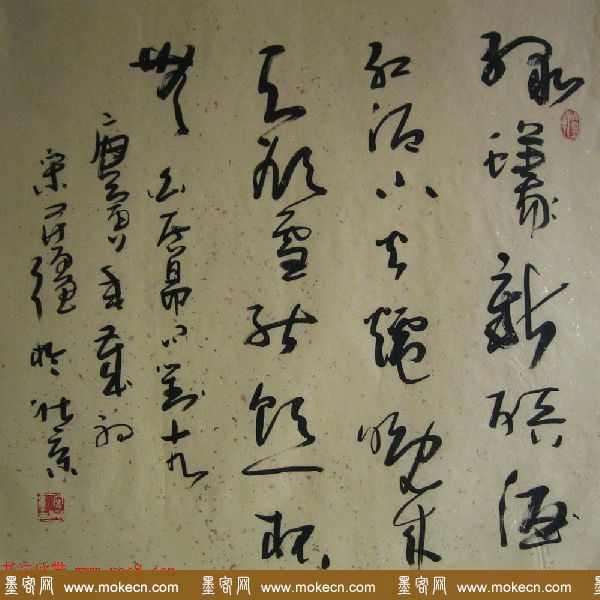 绿蟻新醅酒
红泥小火爐晚来
天欲雪能饮一杯
無 白居易问劉十九
庚寅年歲初
宋 於北京
墨客网 www.mokecn.com 墨客网 www.mokecn.com 墨客网 www.mokecn.com